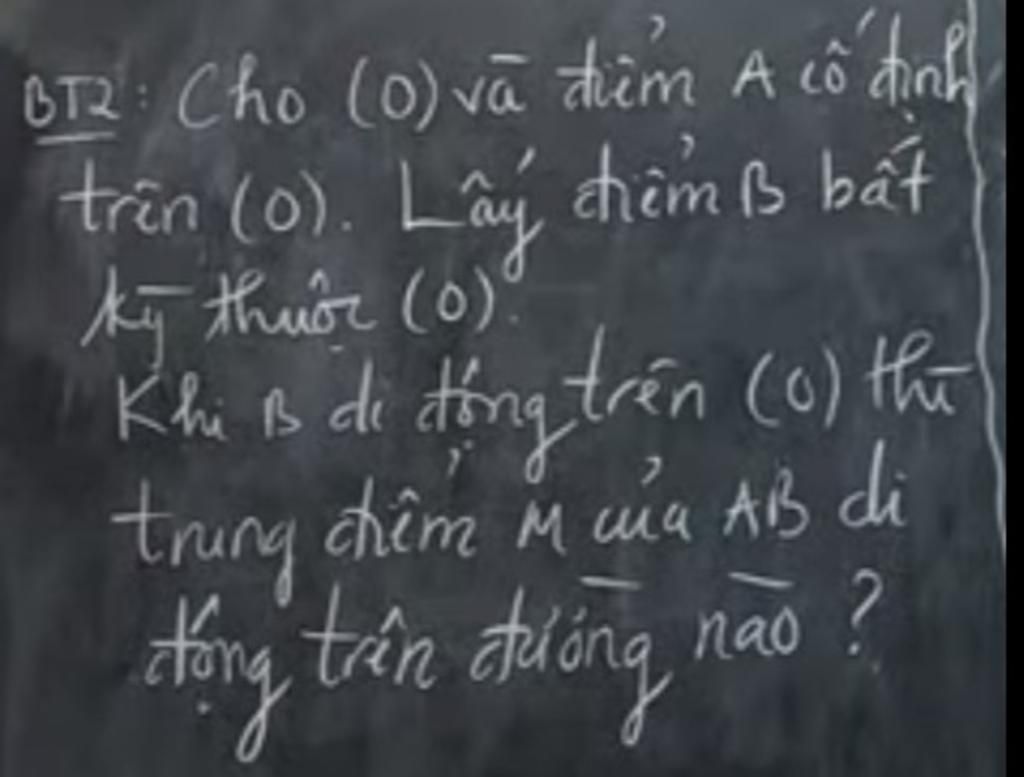 BT2: Cho (O) và điểm A cố định
trên (O). Lấy điểm B bất
kỳ thuộc (O).
Khi B di động trên (O) thì
trung điểm M của AB di
động trên đường nào ?